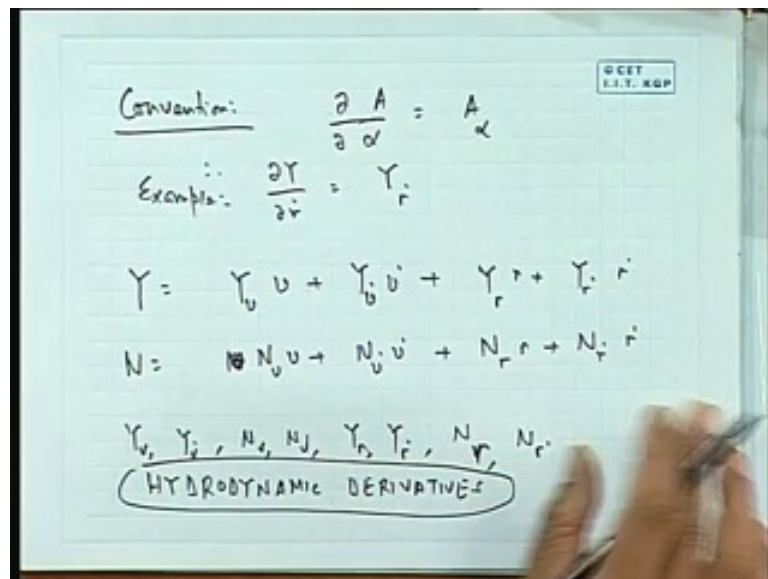 © CET
I.I.T. KGP
Convention: ∂A/∂α = A_α
Example:- ∂Y/∂ṙ = Y_ṙ
Y = Y_v v + Y_v̇ v̇ + Y_r r + Y_ṙ ṙ
N = N_v v + N_v̇ v̇ + N_r r + N_ṙ ṙ
Y_v, Y_v̇, N_v, N_v̇, Y_r, Y_ṙ, N_r, N_ṙ
HYDRODYNAMIC DERIVATIVES